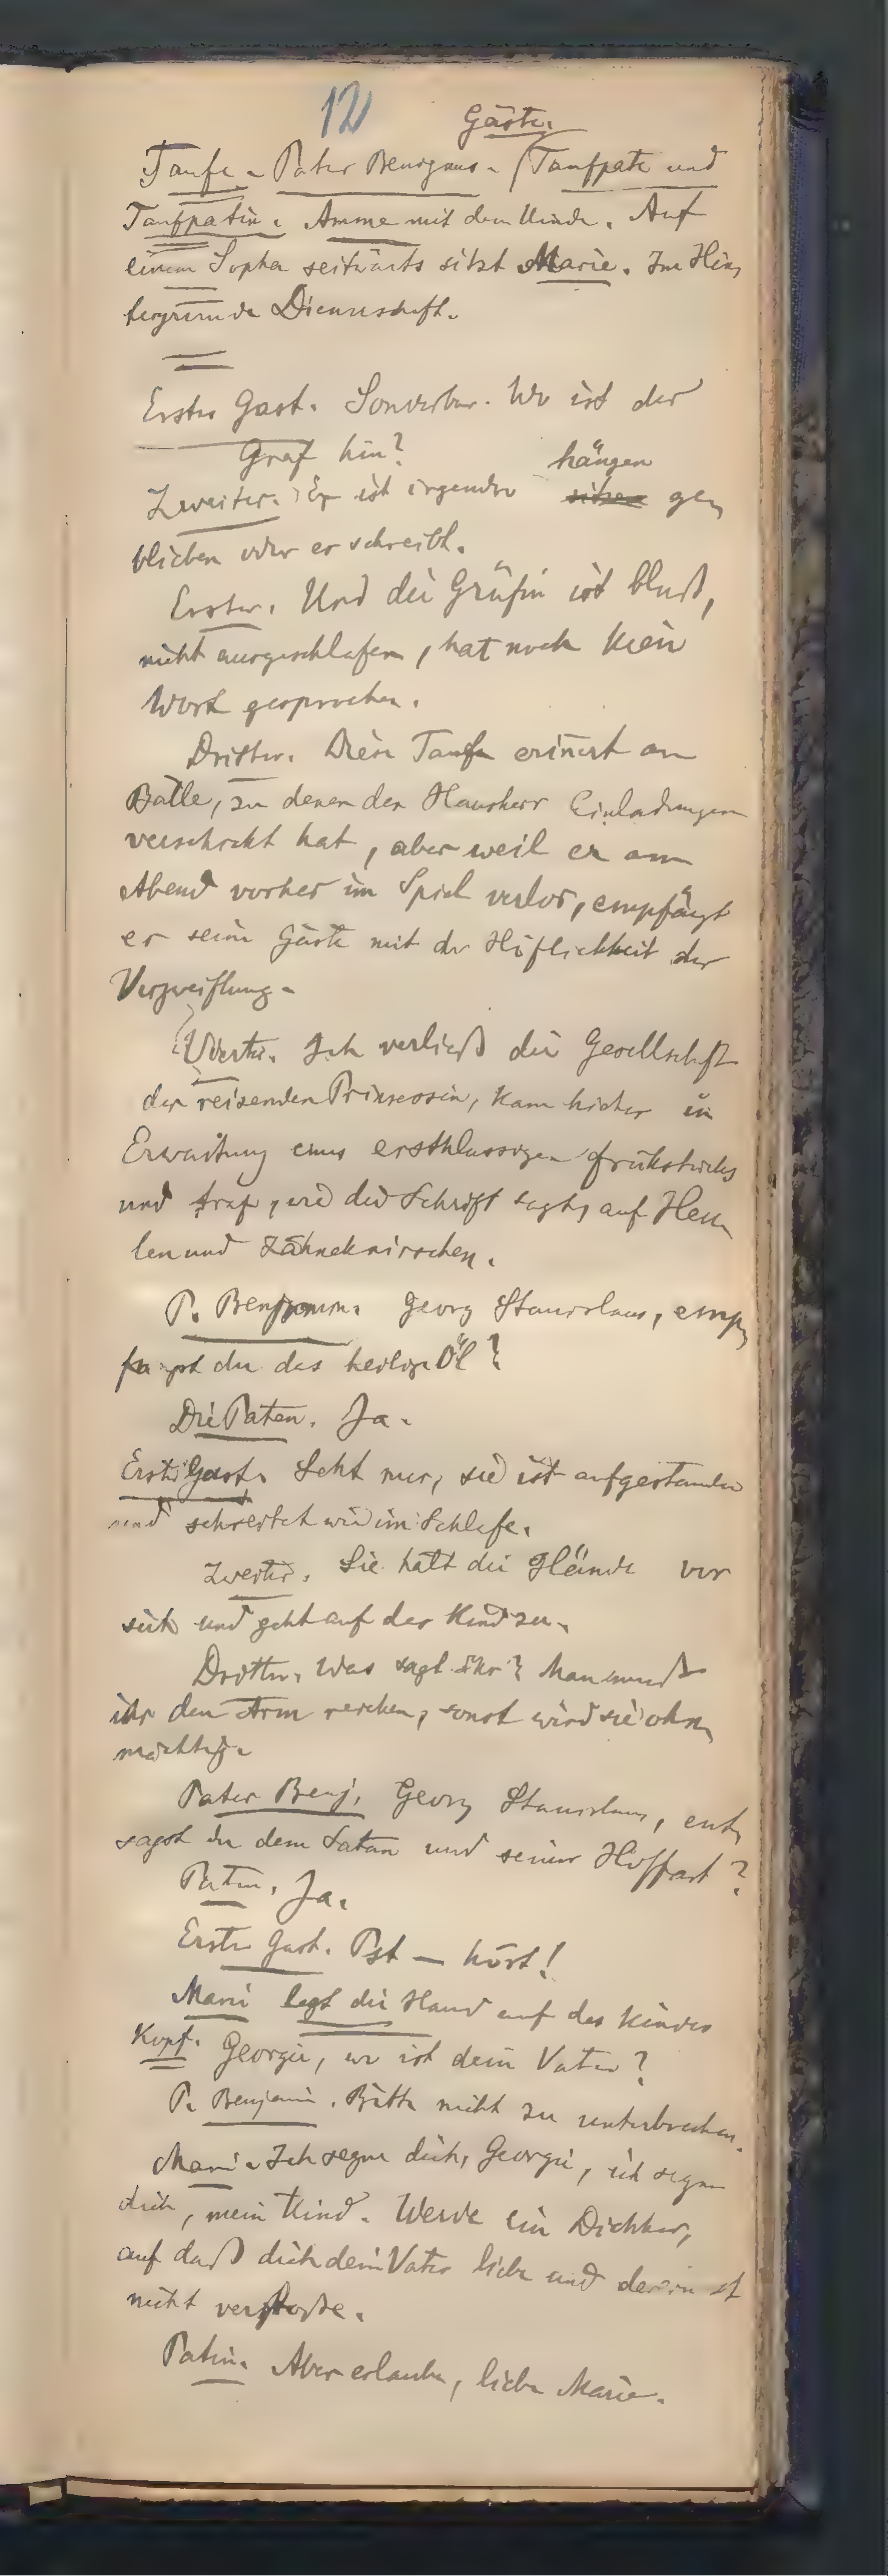 12
Gäste.
Taufe - Pater Benignus - (Taufpate und
Taufpatin. Amme mit dem Kinde. Auf
einem Sopha seitwärts sitzt Marie. Im Hin,
tergrunde Dienerschaft.
Erster Gast. Sonderbar. Wo ist der
Graf hin?
hängen
Zweiter. Er ist irgendwo sitzen ge,
blieben oder er schreibt.
Erster. Und die Gräfin ist blaß,
nicht ausgeschlafen, hat noch kein
Wort gesprochen.
Dritter. Diese Taufe erin̄ert an
Bälle, zu denen der Hausherr Einladungen
verschickt hat, aber weil er am
Abend vorher im Spiel verlor, empfängt
er seine Gäste mit der Höflichkeit der
Verzweiflung -
Vierter. Ich verließ die Gesellschaft
der reisenden Prinzessin, kam hieher in
Erwartung eines erstklassigen Frühstücks
und traf, wie die Schrift sagt, auf Heu,
len und Zähneknirschen.
P. Benjamin. Georg Stanislaus, emp,
fängst du das heilige Öl?
Die Paten. Ja.
Erster Gast. Seht nur, sie ist aufgestanden
und schreitet wie im Schlafe.
Zweiter. Sie hält die Hände vor
sich und geht auf das Kind zu.
Dritter. Was sagt ihr? Man muß
ihr den Arm reichen, sonst wird sie ohn,
mächtig.
Pater Benj. Georg Stanislaus, ent,
sagst du dem Satan und seiner Hoffart?
Paten. Ja.
Erster Gast. Pst — hört!
Marie legt die Hand auf des Kindes
Kopf. Georgie, wo ist dein Vater?
P. Benjamin. Bitte nicht zu unterbrechen.
Marie. Ich segne dich, Georgie, ich segne
dich, mein Kind. Werde ein Dichter,
auf daß dich dein Vater liebe und dereinst
nicht verstoße.
Patin. Aber erlaube, liebe Marie.